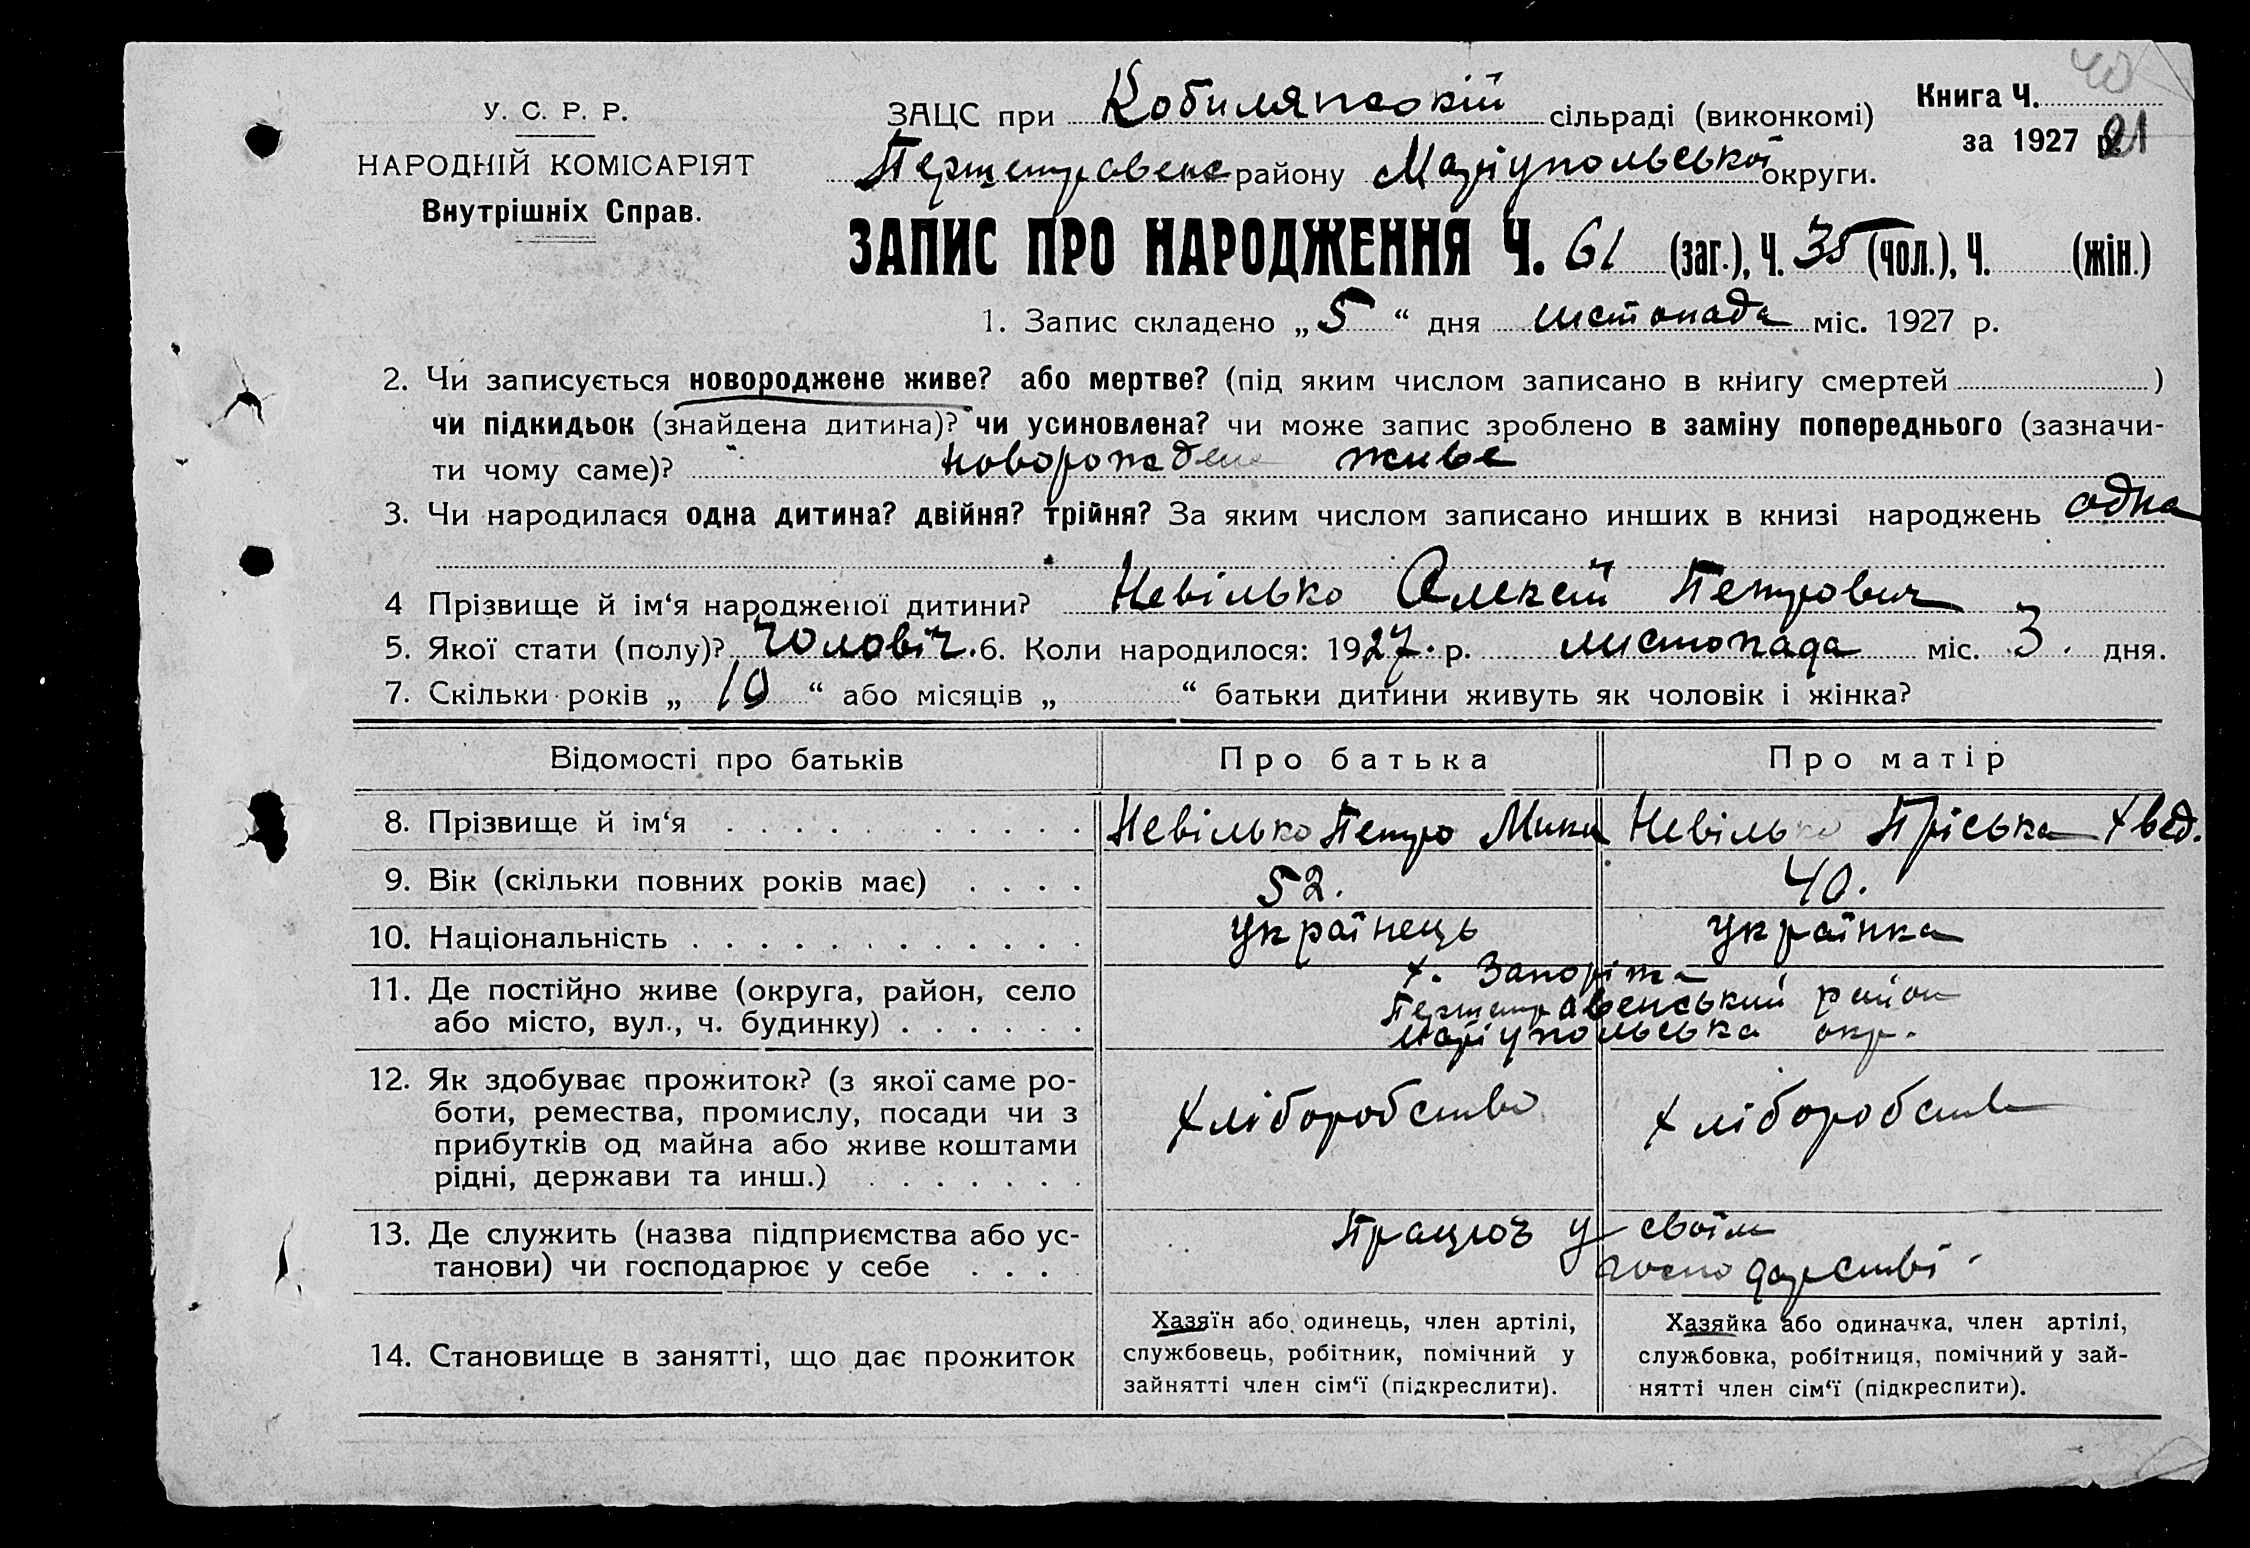 40
У. С. Р. Р.
НАРОДНІЙ КОМІСАРІЯТ
Внутрішніх Справ.
ЗАЦС при сільраді (виконкомі)
Першетравенс району Маріупольської округи.
Книга Ч.
за 1927 р. 21
ЗАПИС ПРО НАРОДЖЕННЯ Ч. 61 (заг.), Ч. 35 (чол.), Ч. (жін.)
1. Запис складено „ 5 “ дня листопада міс. 1927 р.
2. Чи записується новороджене живе? або мертве? (під яким числом записано в книгу смертей )
чи підкидьок (знайдена дитина)? чи усиновлена? чи може запис зроблено в заміну попереднього (зазначи-
ти чому саме)? новорождене живе
3. Чи народилася одна дитина? двійня? трійня? За яким числом записано инших в книзі народжень одна
4 Прізвище й ім‘я народженої дитини? Невілько Алексій Петрович
5. Якої стати (полу)? чоловіч. 6. Коли народилося: 1927. р. листопада міс. 3. дня.
7. Скільки років „ 10 “ або місяців „ “ батьки дитини живуть як чоловік і жінка?
Відомості про батьків Про батька Про матір
8. Прізвище й ім‘я Невілько Петро Мики Невілько Пріська Хвед.
9. Вік (скільки повних років має) 52. 40.
10. Національність українець українка
11. Де постійно живе (округа, район, село
або місто, вул., ч. будинку)
х. Запоріжа
Першетравенський район
Маріупольська окр.
12. Як здобуває прожиток? (з якої саме ро-
боти, ремества, промислу, посади чи з
прибутків од майна або живе коштами
рідні, держави та инш.)
хліборобство хліборобств
13. Де служить (назва підприємства або ус-
танови) чи господарює у себе
Працюэ у своїм
господарстві.
14. Становище в занятті, що дає прожиток
Хазяїн або одинець, член артілі,
службовець, робітник, помічний у
зайнятті член сім‘ї (підкреслити).
Хазяйка або одиначка, член артілі,
службовка, робітниця, помічний у зай-
нятті член сім‘ї (підкреслити).